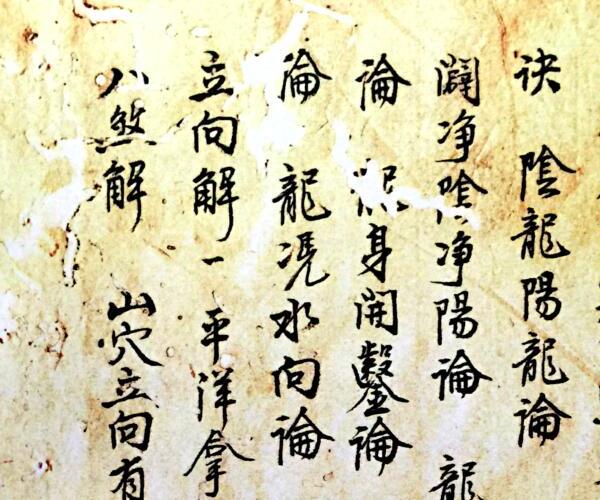 訣 陰龍陽龍論
闢净陰净陽論 龍
論 身開鑿論
論 龍水向論
立向解一 平洋拿
八煞解 山穴立向有